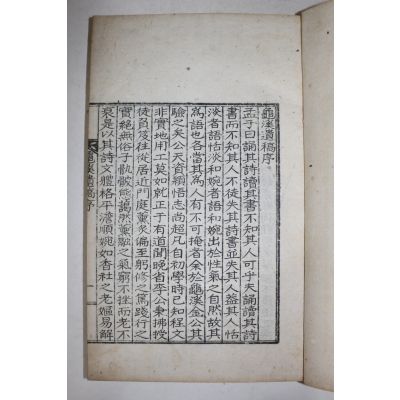 龜溪遺稿序
孟子曰誦其詩讀其書不知其人可乎夫誦讀其詩
書而不知其人不徒失其詩書並失其人蓋其人恬
淡者語恬淡和婉者語和婉出於性氣之自然故其
為語也各當其為人有不可掩者余於龜溪金公其
驗之矣公天資穎悟志尚超凡自初學時已知程文
非實地用工莫如就正于有道聞晚省李公秉拂授
徒負笈往從居近門庭薰炙偏至躬修之篤踐行之
實絕無俗子骫骳能藹然薰融之氣窮不挫而老不
衰是以其詩文體格平澹順婉如香社之老嫗易解
龜溪遺稿序 一